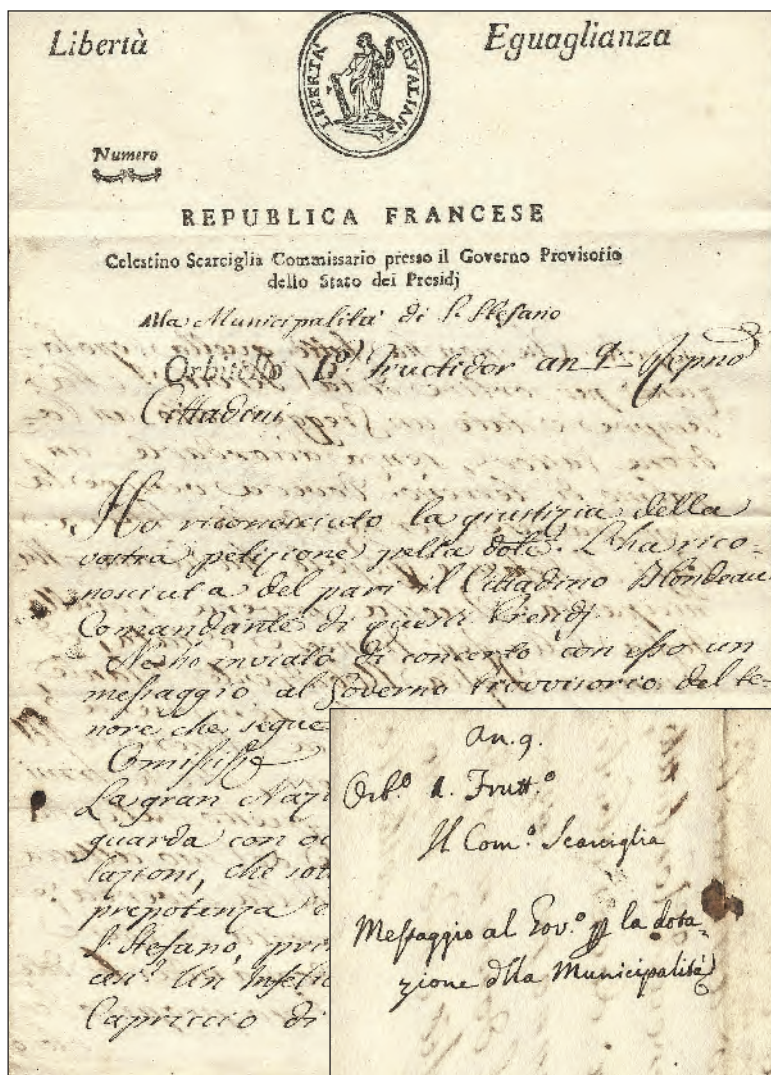 Libertà
Eguaglianza
LIBERTA' EGUALIANZA
Numero
REPUBLICA FRANCESE
Celestino Scarciglia Commissario presso il Governo Provisorio
dello Stato dei Presidj
Alla Municipalità di S. Stefano
Orbitello P.º Fructidor an 9
Cittadini
Ho riconosciuto la giustizia della
vostra petizione pella dote. L'ha rico-
nosciuta del pari il Cittadino Blondeau
Comandante di questi
Ne ho inviato di concerto con esso un
messaggio al Governo Provvisorio del te-
nore che segue
La gran Nazi
guarda con oc
lazioni, che sot
prepotenza e
S. Stefano, pri
cesi. Un Infelic
Capriccio di
an. 9.
Orb.º 1. Frutt.º
Il Com.º Scarciglia
Messaggio al Gov.º p la dota-
zione dlla Municipalità